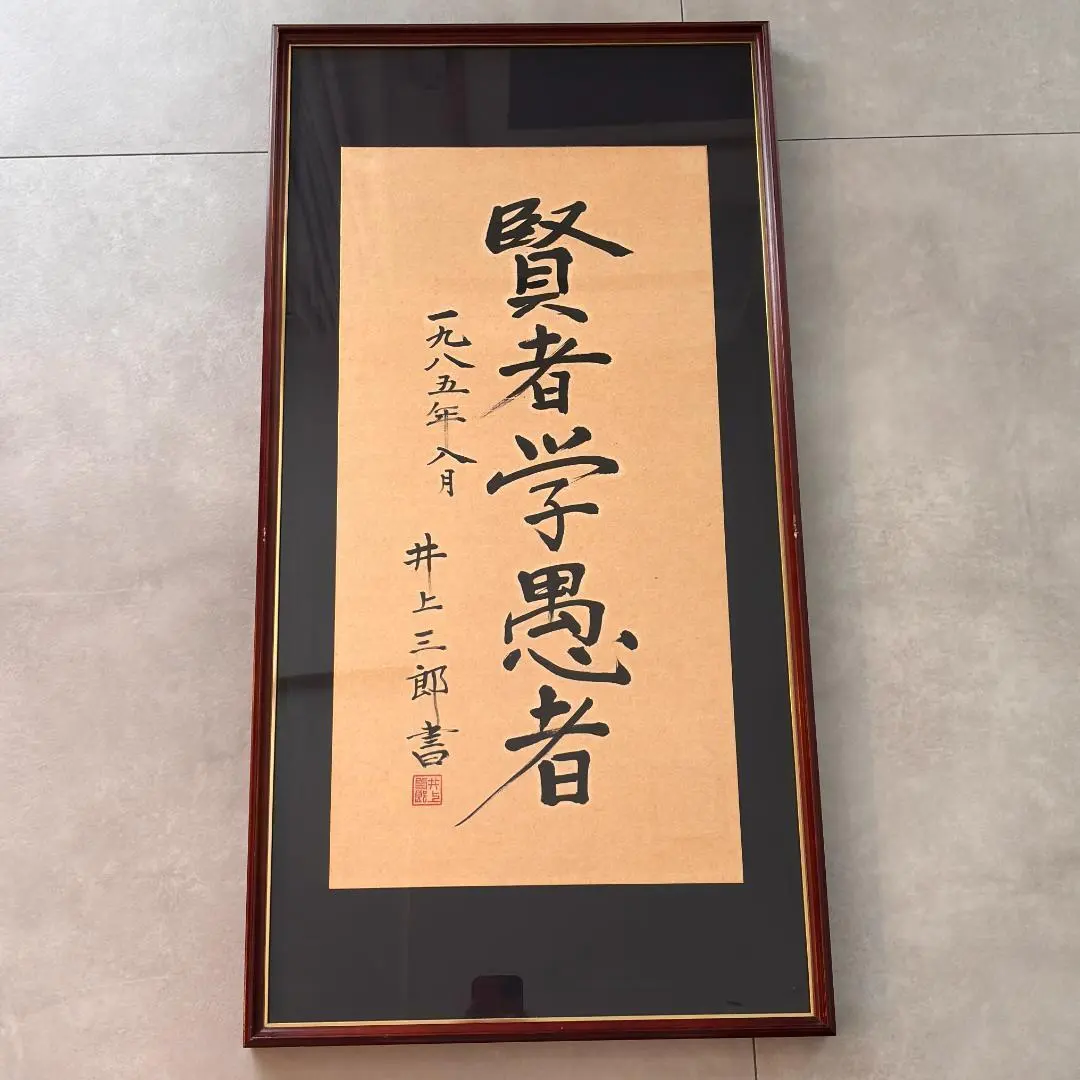 賢者学愚者
一九八五年八月
井上三郎書
井上三郎